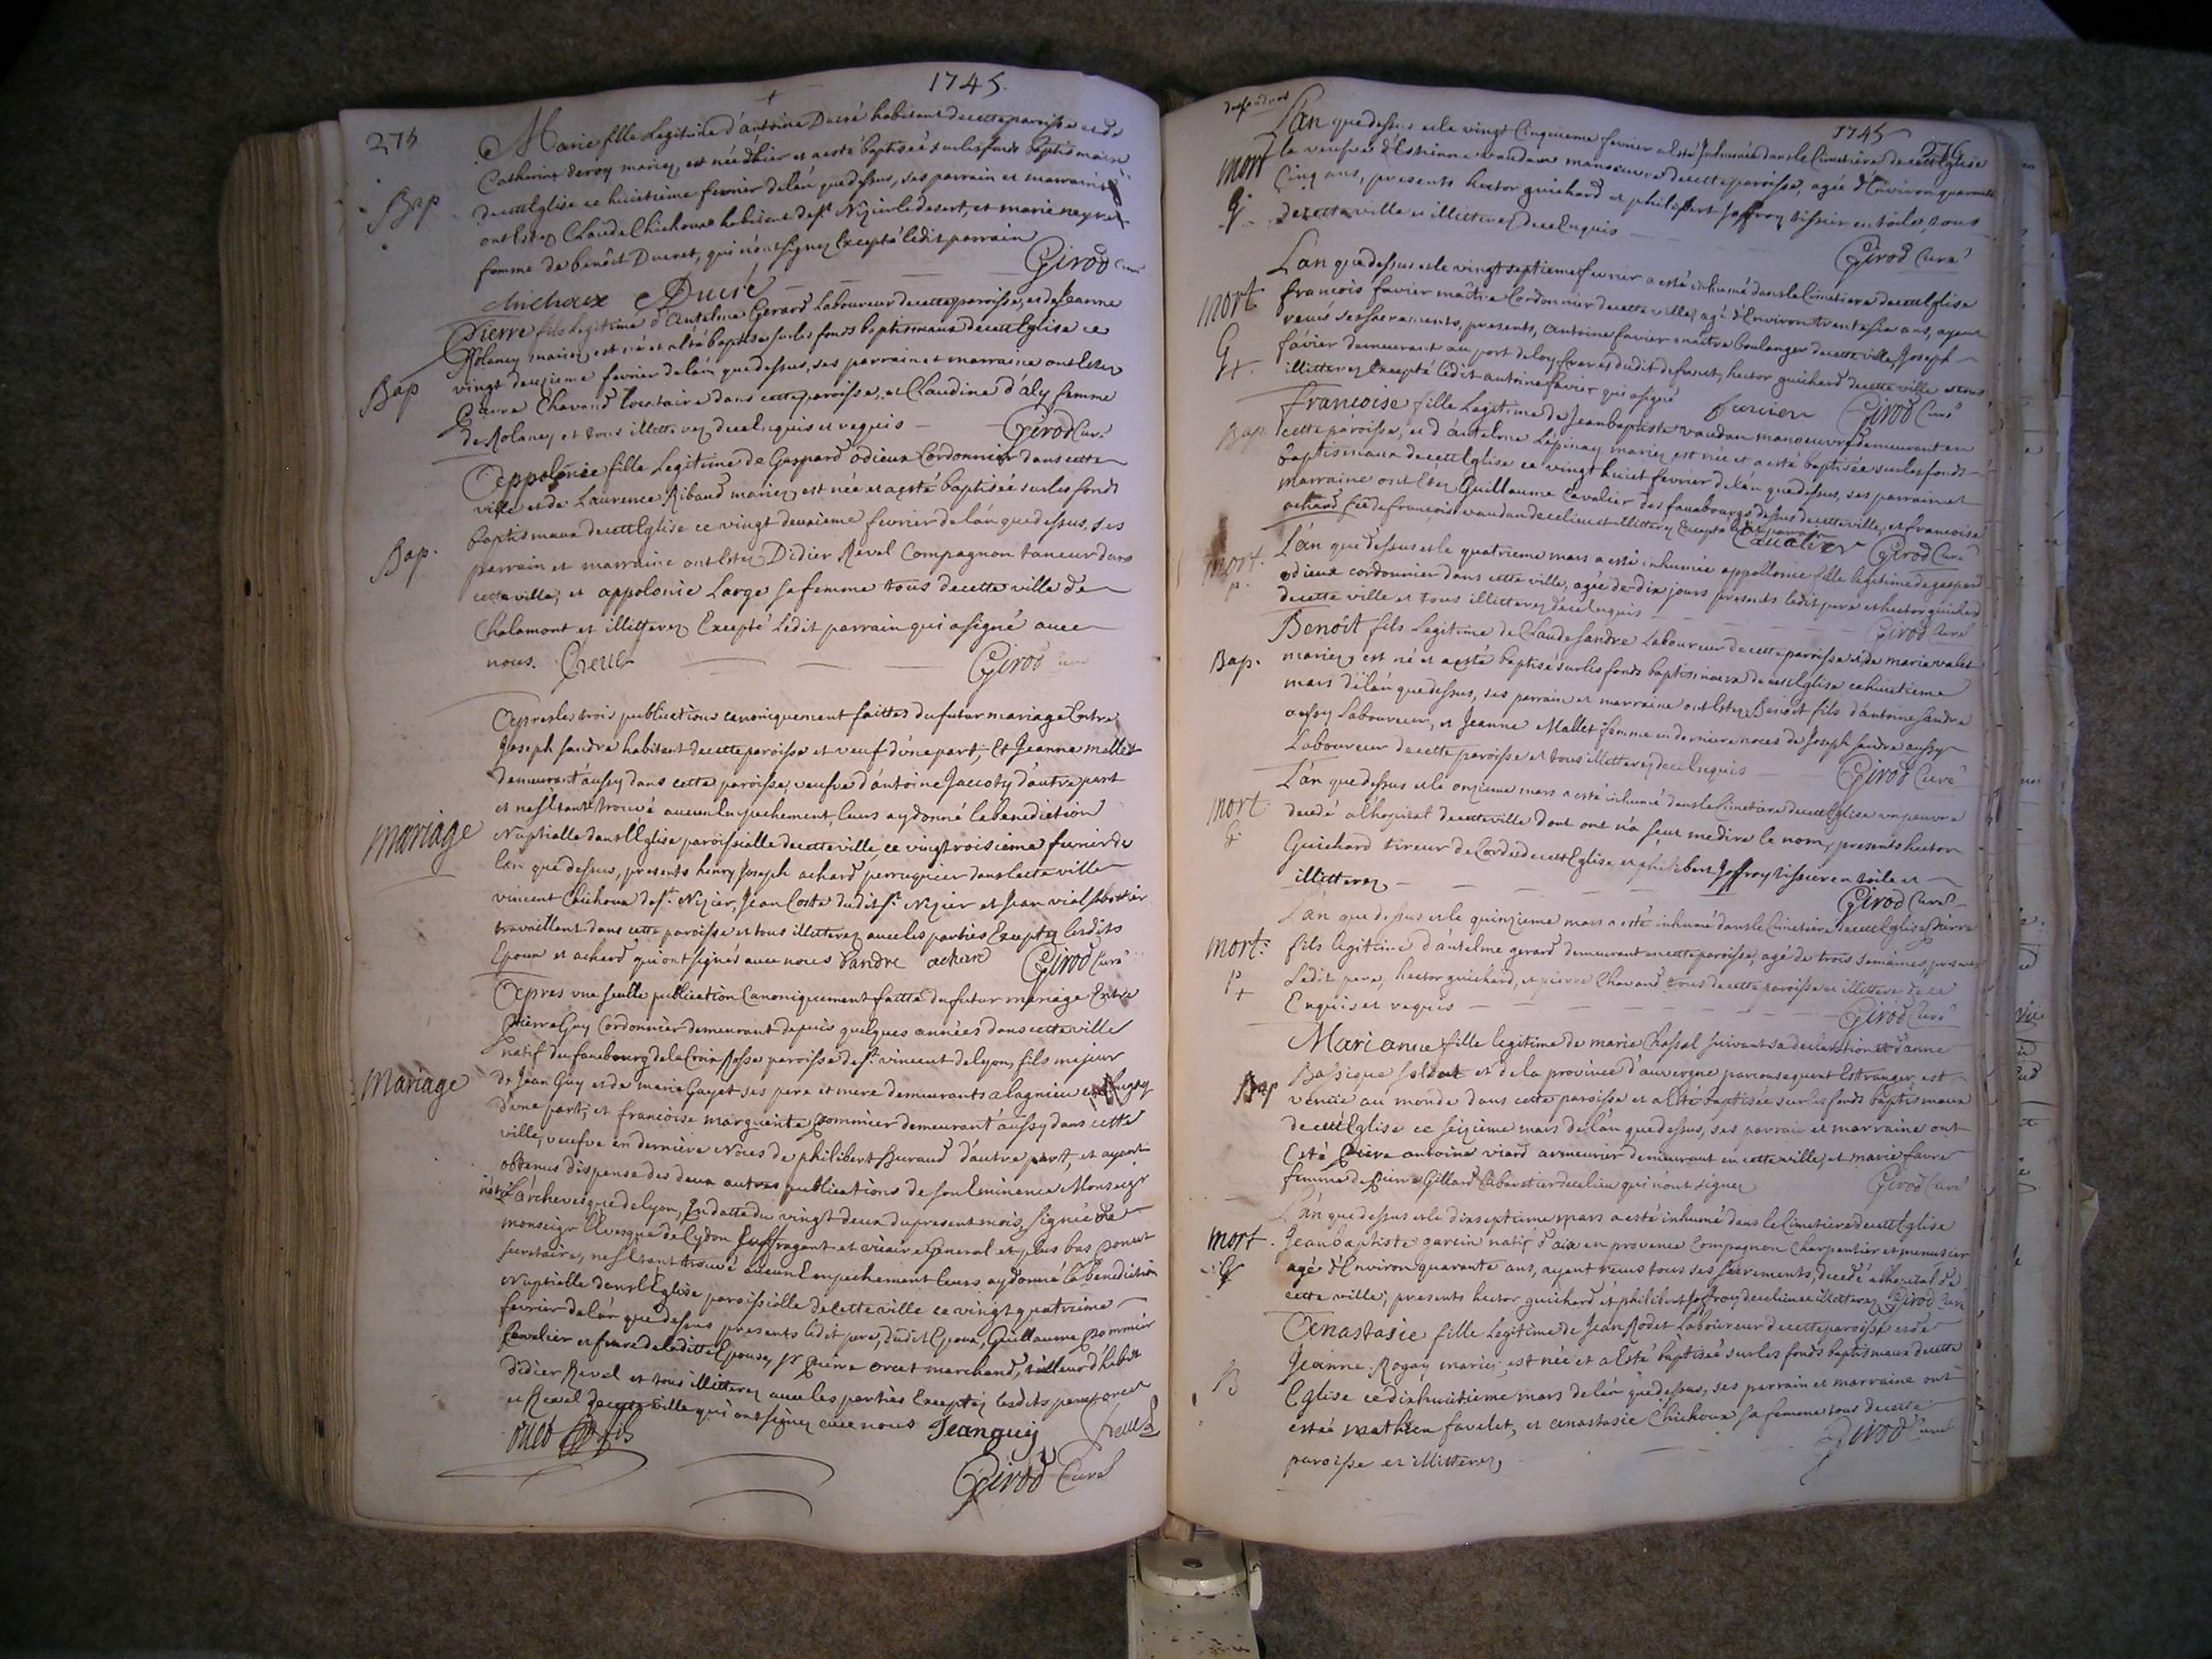 1745
275
Marie fille Legitime d'antoine Ducré habitant decette paroisse et de
Catherine deroy mariez, est née dhier et a esté baptisée sur les fonds baptismaux
Bap
de cette Eglise ce huitieme fevrier de lan que dessus, ses parrain et marraine
ont Estez Claude Chichoux habitant de st Nizier le desert, et marie neyret
femme de benoit Ducret, qui n'ont signez Excepté ledit parrain
Girod Curé
chichoux Ducré
Pierre fils Legitime d'Antelme Gerard Laboureur decette paroisse, et de Jeanne
Rolancy mariez, est né et a Esté baptisé sur les fonds baptismaux de cette Eglise ce
Bap
vingt deuxieme fevrier de lan que dessus, ses parrain et marraine ont Estez
Pierre Chavand locataire dans cette paroisse, et Claudine d'aly femme
de Rolancy et tous illitterez de ce Enquis et requis
Girod Curé
Appolonie fille Legitime de Gaspard odieux Cordonnier dans cette
ville et de Laurence Ribaud mariez, est née et a esté baptisée sur les fonds
baptismaux de cette Eglise ce vingt deuxieme fevrier de lan que dessus, ses
Bap.
parrain et marraine ont Estez Didier Revel Compagnon taneur dans
cette ville, et appolonie Large sa femme tous decette ville de
Chalamont et illitterez Excepté Ledit parrain qui a signé avec
nous.
Girod Curé
Apres les trois publications canoniquement faittes du futur mariage Entre
Joseph sandre habitant decette paroisse et veuf d'une part, Et Jeanne mallet
demeurant aussy dans cette paroisse, veufve d'antoine Jaccoty d'autre part
et ne s'estant trouvé aucun Empechement, leurs ay donné la benediction
mariage
Nuptialle dans l'Eglise paroissialle decette ville, ce vingt troisieme fevrier de
Lan que dessus, presents henry Joseph achard perruquier dans cette ville
vincent Chichoux de st. Nizier, Jean Coste dudit st. Nizier et Jean vial sabottier
travaillant dans cette paroisse et tous illitterez avec les parties Exceptez lesdits
Epoux et achard qui ont signés avec nous Sandre achard Girod Curé
Apres une seulle publication Canoniquement faitte du futur mariage Entre
Pierre Guy Cordonnier demeurant depuis quelques années dans cette ville
natif du faubourg de la Croix Rosse paroisse de st. vincent de lyon, fils majeur
Mariage
de Jean Guy et de marie Gayet ses pere et mere demeurants a lagnieu en Bugey
d'une part, et francoise marguerite pommier demeurant aussy dans cette
ville, veufve en derniere Noces de philibert Buraud d'autre part, et ayant
obtenus dispense des deux autres publications de son Eminence Monseigr
notre L'archevesque de lyon, En datte du vingt deux du present mois, signée de
monseigr l'Evesque de Cydon suffragant et vicaire General et plus bas
secretaire, ne s'estant trouvé aucun Empechement leurs ay donné la benediction
Nuptialle dans l'Eglise paroissialle decette ville ce vingt quatrieme
fevrier de lan que dessus presents ledit pere, dudit Epoux, Guillaume pommier
Cavalier et frere de laditte Epouse, sr pierre orcet marchand, tailleur d'habit
didier Revel et tous illitterez avec les parties Exceptez lesdits pere, orcet
et Revel decette ville qui ont signez avec nous Jean guy
Girod Curé
1745
276
Lan que dessus et le vingt Cinquieme fevrier a Esté Inhumée dans le Cimetiere de cette Eglise
mort
la veufve d'Estienne vaudan manoeuvre decette paroisse, agée d'Environ quarante
Cinq ans, presents hector guichard et philibert Joffroy tissier en toile, tous
decette ville et illitterez de ce Enquis
Girod Curé
Lan que dessus et le vingt septieme fevrier a esté inhumé dans le Cimetiere de cette Eglise
mort
francois favier maitre Cordonnier decette ville, agé d'Environ trente six ans, ayant
G
receu ses sacrements, presents, antoine favier maitre boulanger decette ville, Joseph
favier demeurant au port de loy freres dudit defunct, hector guichard decette ville et tous
illitterez Excepté ledit antoine favier qui a signé favier Girod Curé
Bap.
francoise fille Legitime de Jean baptiste vaudan manoeuvre demeurant en
cette paroisse, et d'antelme Lepinay mariez est née et a esté baptisée sur les fonds
baptismaux de cette Eglise ce vingt huict fevrier de lan que dessus, ses parrain et
marraine ont Estez Guillaume Cavalier des fauxbourgs dessus decette ville, et francoise
achard fe de francois vaudan de ce lieu et illitterez Excepté ledit parrain
Cavalier Girod Curé
mort.
Lan que dessus et le quatrieme mars a esté inhumée appollonie fille legitime de gaspard
odieux cordonnier dans cette ville, agée de dix jours presents ledit pere et hector guichard
decette ville et tous illitterez de ce Enquis
Girod Curé
Benoit fils Legitime de Claude sandre Laboureur decette paroisse et de marie valet
Bap.
mariez, est né et a esté baptisé sur les fonds baptismaux de cette Eglise ce huitieme
mars de lan que dessus, ses parrain et marraine ont Estez Benoit fils d'antoine sandre
aussy Laboureur, et Jeanne Mallet femme en derniere noces de Joseph sandre aussy
Laboureur decette paroisse et tous illitterez de ce Enquis
Girod Curé
Lan que dessus et le onzieme mars a esté inhumé dans le Cimetiere de cette Eglise un pauvre
mort
decedé a lhopital decette ville dont ont n'a sceut me dire le nom, presents hector
G
Guichard tireur de Cordes de cette Eglise et philibert Joffroy tissier en toile et
illitterez
Girod Curé
Lan que dessus et le quinzieme mars a esté inhumé dans le Cimetiere de cette Eglise pierre
mort.
fils legitime d'antelme gerard demeurant en cette paroisse, agé de trois semaines, presents
P
Ledit pere, hector guichard, et pierre Chavand tous decette paroisse et illitterez de ce
Enquis et requis
Girod Curé
Marianne fille legitime de marie Chassal suivant sa declaration et d'anne
Bassique soldat et de la province d'auvergne parconsequent Estranger, est
Bap
venue au monde dans cette paroisse et a Esté baptisée sur les fonds baptismaux
de cette Eglise ce seizieme mars de lan que dessus, ses parrain et marraine ont
Esté pierre antoine viard armeurier demeurant en cette ville, et marie favre
femme de pierre Gillard Cabaretier de ce lieu qui n'ont signez
Girod Curé
Lan que dessus et le dixseptieme mars a esté inhumé dans le Cimetiere de cette Eglise
mort.
Jean baptiste garcin natif d'aix en provence Compagnon Charpentier et menusier
agé d'Environ quarante ans, ayant receus tous ses sacrements, decedé a lhopital de
cette ville, presents hector guichard et philibert Joffroy de ce lieu et illitterez Girod Curé
Anastasie fille Legitime de Jean Rodet Laboureur decette paroisse et de
Jeanne Rogay mariez est née et a Esté baptisée sur les fonds baptismaux de cette
B
Eglise ce dixhuitieme mars de lan que dessus, ses parrain et marraine ont
estée mathieu favelet, et anastasie Chichoux sa femme tous decette
paroisse et illitterez
Girod Curé